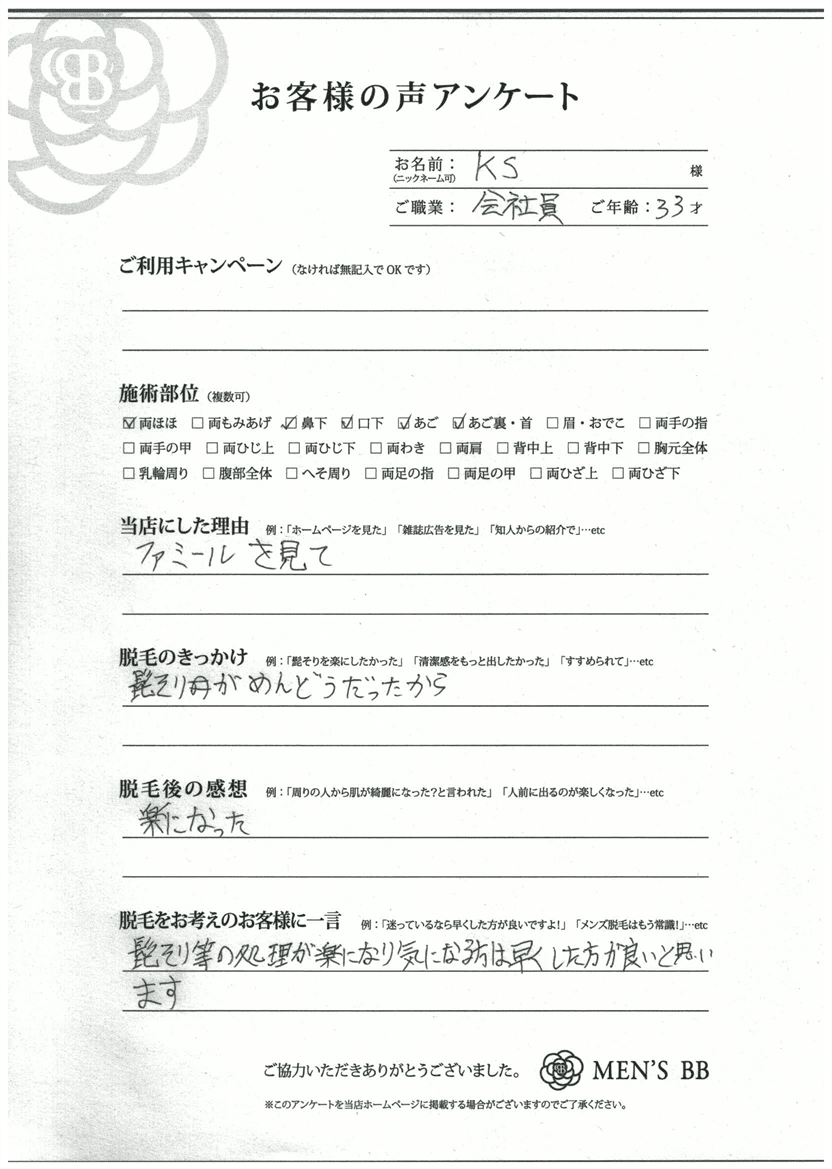 BB
お客様の声アンケート
お名前: KS 様
(ニックネーム可)
ご職業: 会社員 ご年齢:33才
ご利用キャンペーン (なければ無記入でOKです)
施術部位 (複数可)
☑両ほほ □両もみあげ ☑鼻下 ☑口下 ☑あご ☑あご裏・首 □眉・おでこ □両手の指
□両手の甲 □両ひじ上 □両ひじ下 □両わき □両肩 □背中上 □背中下 □胸元全体
□乳輪周り □腹部全体 □へそ周り □両足の指 □両足の甲 □両ひざ上 □両ひざ下
当店にした理由 例:「ホームページを見た」「雑誌広告を見た」「知人からの紹介で」…etc
ファミールを見て
脱毛のきっかけ 例:「髭そりを楽にしたかった」「清潔感をもっと出したかった」「すすめられて」…etc
髭そりがめんどうだったから
脱毛後の感想 例:「周りの人から肌が綺麗になった?と言われた」「人前に出るのが楽しくなった」…etc
楽になった
脱毛をお考えのお客様に一言 例:「迷っているなら早くした方が良いですよ!」「メンズ脱毛はもう常識!」…etc
髭そり等の処理が楽になり気になる方は早くした方が良いと思い
ます
ご協力いただきありがとうございました。 MEN'S BB
※このアンケートを当店ホームページに掲載する場合がございますのでご了承ください。